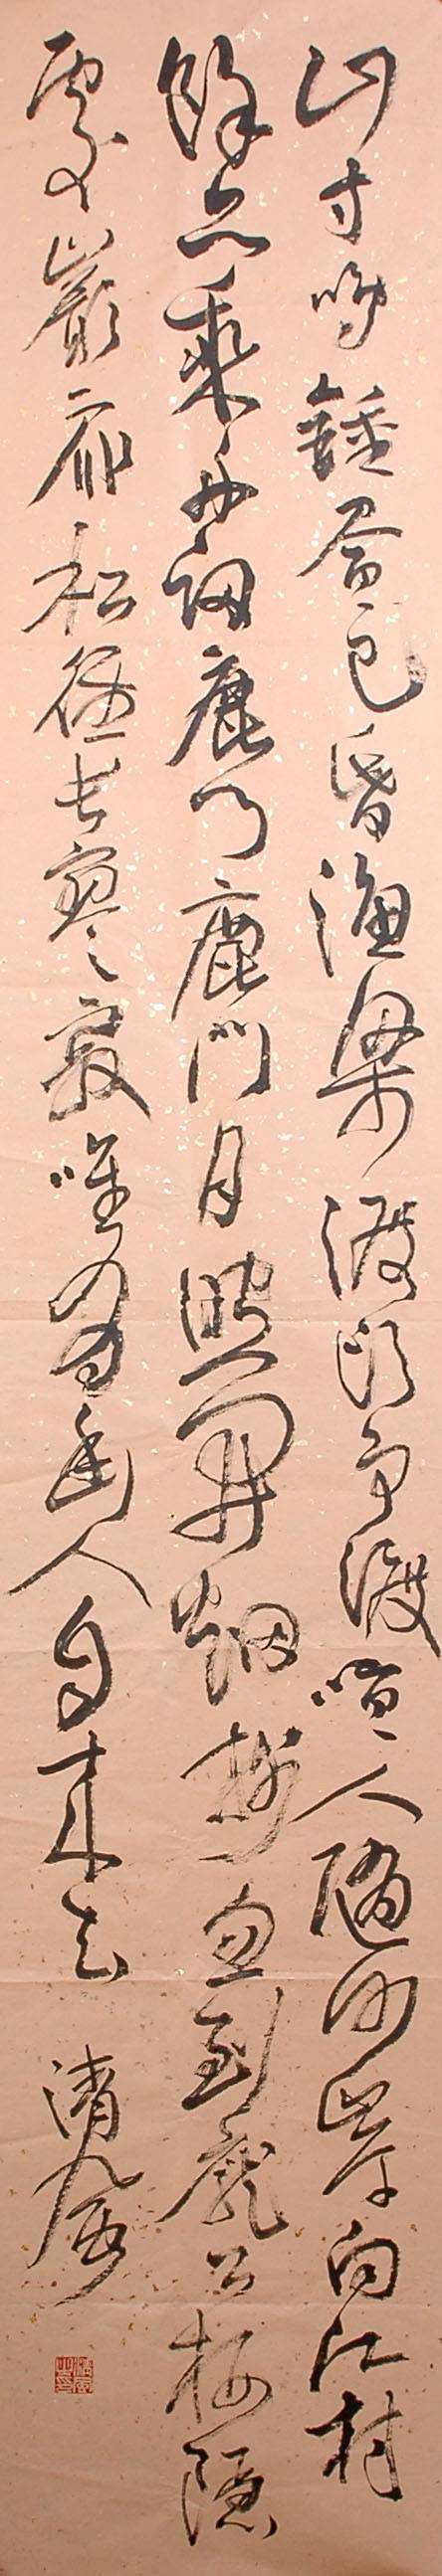 山寺鳴鐘晝已昏漁梁渡頭爭渡喧人隨沙岸向江村
餘亦乘舟歸鹿門鹿門月照開烟樹忽到龐公栖隱
處巖扉松徑長寥寂唯有幽人自來去 清